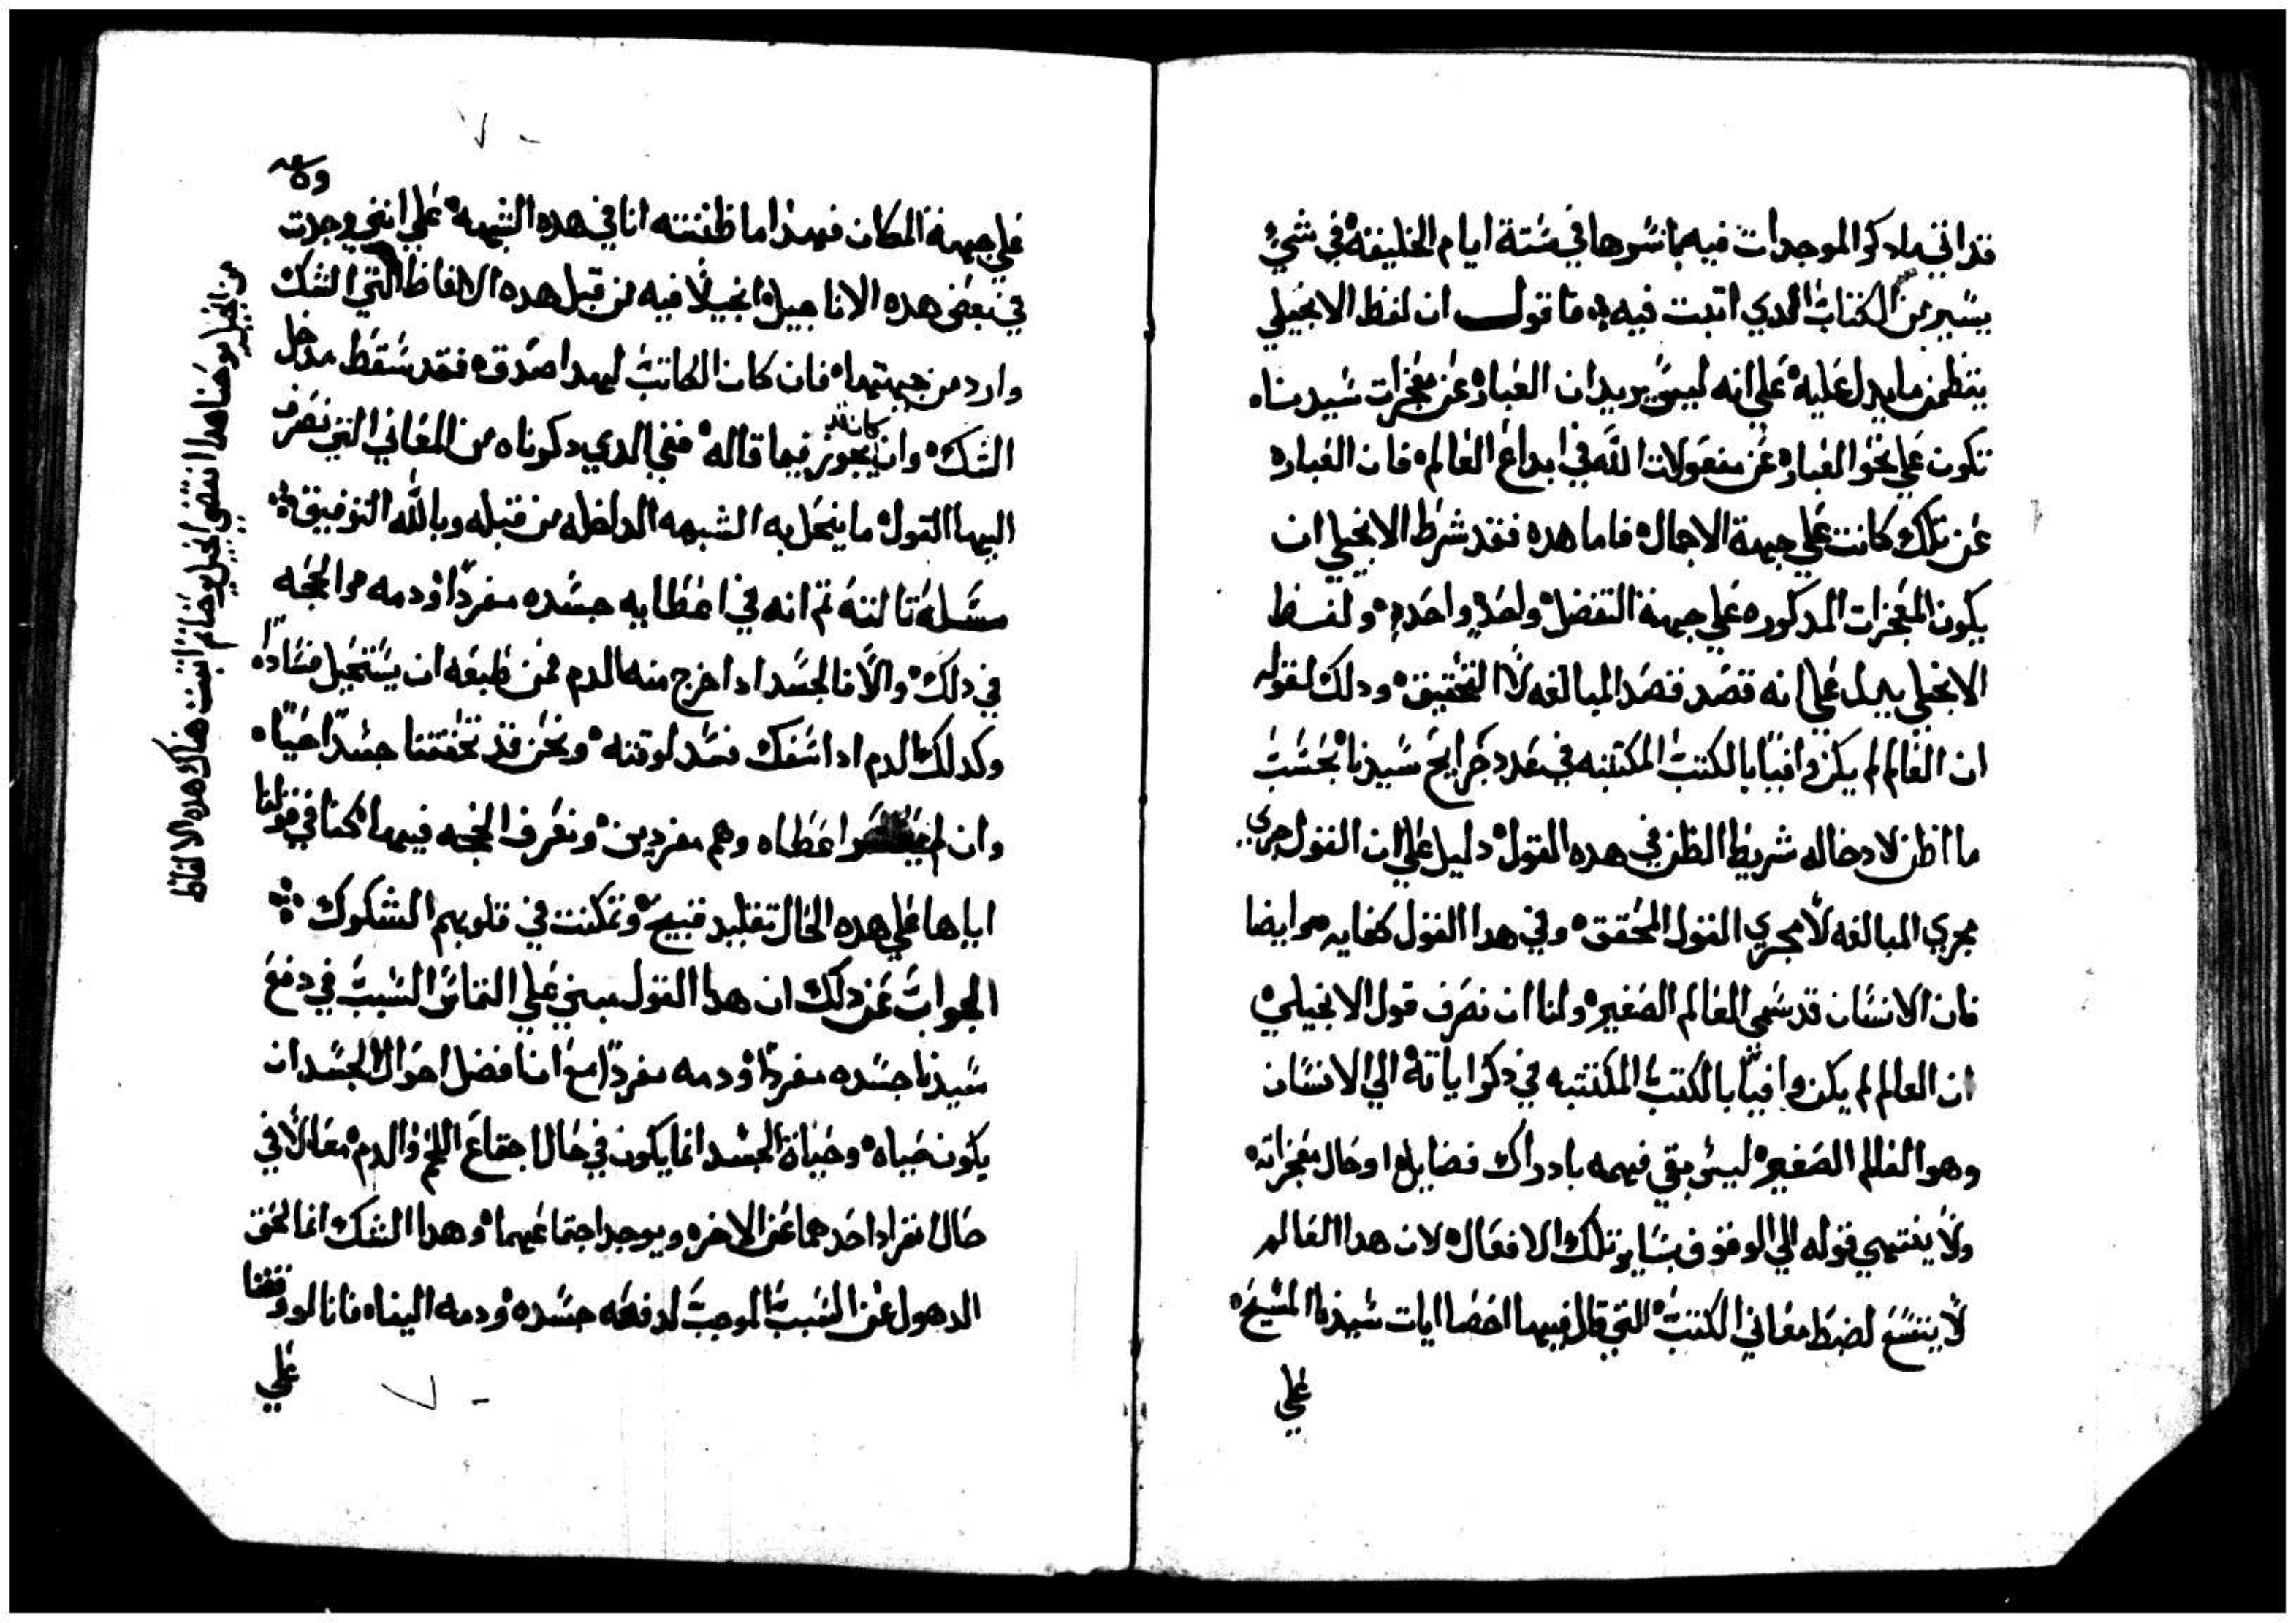 قد اتي بادكر الموجدات فيه باسرها في ستة ايام الخليفة في شي
يسير من الكتاب الدي اتبت فيه فاقول ان لفظ الانجيلي
ينظمن ما يدل عليه علي انه ليس يريد ان العباره عن معجزات سيدنا
تكون علي نحو العباره عن مفعولات الله في ابداع العالم فان العباره
عن تلك كانت علي جهة الاجمال فاما هده فقد شرط الانجيلي ان
يكون المعجزات المدكوره علي جهة التفضل واحده واحده ولفظ
الانجيلي يدل علي انه قصد قصد المبالغه لا التحقيق ودلك لقوله
ان العالم لم يكن وافيا بالكتب المكتتبه في عدد جرايح سيدنا بحسب
ما اظن لادخاله شريط الظن في هده القول دليل علي ان القول جري
مجري المبالغه لا مجري القول المحقق وفي هدا القول كفايه وايضا
فان الانسان قد سمي العالم الصغير ولنا ان نصرف قول الانجيلي
ان العالم لم يكن وافيا بالكتب المكتتبه في دكر اياته الي الانسان
وهو العالم الصغير ليس بقي فهمه بادراك فضايل احال معجزاته
ولا ينتهي قوله الي الوقوف بساير تلك الافعال لان هدا العالم
لا يتسع لضبط معاني الكتب التي قال فيها احصا ايات سيدنا المسيح
علي
علي جهة المكان فهدا ما ظننته انا في هده الشبهه علي انني وجدت
في بعض هده الاناجيل انجيلا فيه من قبل هده الالفاظ التي الشك
وارد من جهتها فان كان الكاتب لهدا صدق فقد سقط مدخل
الشك وان كان قد يجوز فيما قاله ففي الدي دكرناه من المعاني التي نصرف
اليها القول ما ينحل به الشبهه الداخله من قبله وبالله التوفيق
مسله تالته تم انه في اعطايه جسده مفردا ودمه ما الحجه
في دلك والا فالجسد ادا خرج منه الدم فمن طبعه ان يستحيل فسادا
وكدلك الدم ادا سفك فسد لوقته ونحن قد تحققنا جسدا حيا
وان لم اعطاه وهم مفردين ونعرف الحجه فيهما كنا في قولنا
اياها علي هده الحال تقليد قبيح وتمكنت في قلوبهم الشكوك
الجواب عن دلك ان هدا القول مبني علي التماس السبب في دفع
سيدنا جسده مفردا ودمه مفردا مع ان افضل احوال الجسد ان
يكون حياه وحياة الجسد انما يكون في حال اجتماع اللحم والدم معا لا في
حال انفراد احدهما عن الاخر ويوجد اجتماعهما وهدا الشك انما لحق
الدهول عن السبب الموجب لدفعه جسده ودمه الينا فانا لو وقفنا
علي
من انجيل يوحنا هدا انتضي انجيل يوحنا تم اتبت هناك هده الالفاظ